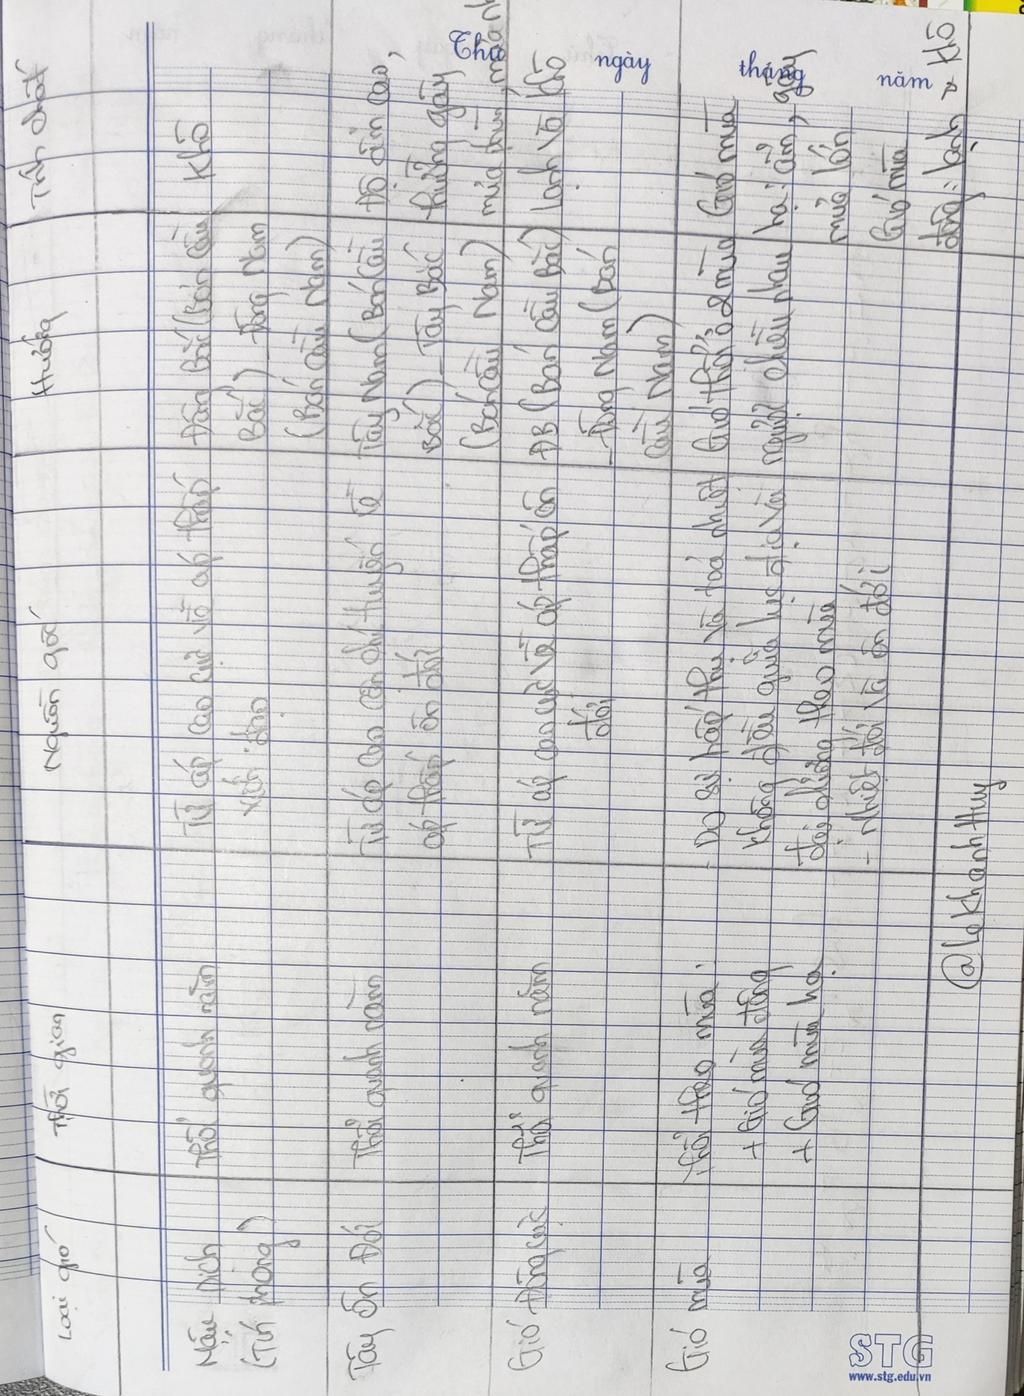 Thứ ngày tháng năm
Loại gió
Thời gian
Nguồn gốc
Hướng
Tính chất
Mậu Dịch
(Tín phong)
Thổi quanh năm
Từ áp cao cực về áp thấp
xích đạo
Đông Bắc (Bán Cầu
Bắc) - Đông Nam
(Bán cầu Nam)
Khô
Tây ôn Đới
Thổi quanh năm
Từ áp cao cận chí tuyến về
áp thấp ôn đới
Tây Nam (Bán Cầu
Bắc) - Tây Bắc
(Bán cầu Nam)
Độ ẩm cao,
thường gây
mưa phùn, mưa nhỏ
Gió Đông cực
Thổi quanh năm
Từ áp cao cực về áp thấp ôn
đới
ĐB (Bán Cầu Bắc)
- Đông Nam (Bán
Cầu Nam)
lạnh và khô
Gió mùa
Thổi theo mùa:
+ Gió mùa đông
+ Gió mùa hạ
Do sự hấp thụ và toả nhiệt
không đều giữa lục địa và
đại dương theo mùa
- nhiệt đới và ôn đới
Gió thổi ở 2 mùa
ngược chiều nhau
Gió mùa
hạ: ẩm, gây
mưa lớn
Gió mùa
đông: lạnh & khô
@LeKhanhHuy
STG
www.stg.edu.vn